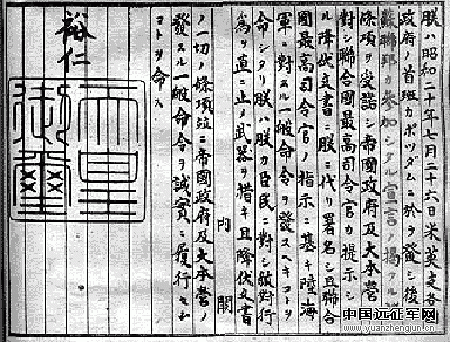 朕ハ昭和二十年七月二十六日米英支各
政府ノ首班カポツダムニ於テ發シ後
蘇聯邦カ參加シタル宣言ノ掲クル
條項ヲ受諾シ帝國政府及大本營
對シ聯合國最高司令官カ提示シ
ル降伏文書ニ朕ニ代リ署名シ且聯合
國最高司令官ノ指示ニ基キ陸海
軍ニ對スル一般命令ヲ發スヘキコトヲ
命シタリ朕ハ朕カ臣民ニ對シ敵對行
爲ヲ直ニ止メ武器ヲ措キ且降伏文書
内閣
ノ一切ノ條項竝ニ帝國政府及大本營ノ
發スル一般命令ヲ誠實ニ履行セム
コトヲ命ス
裕仁
天皇
御璽
中国远征军网
www.yuanzhengjun.cn